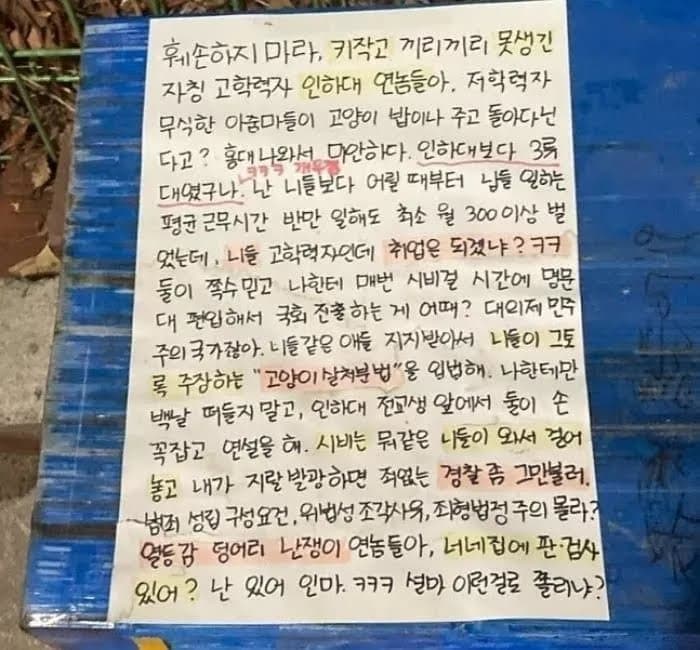 훼손하지 마라, 키작고 끼리끼리 못생긴
자칭 고학력자 인하대 연놈들아. 저학력자
무식한 아줌마들이 고양이 밥이나 주고 돌아다닌
다고? 홍대 나와서 미안하다. 인하대보다 3류
ㅋㅋㅋ 개웃겨
대였구나. 난 니들보다 어릴 때부터 남들 일하는
평균 근무시간 반만 일해도 최소 월 300 이상 벌
었는데, 니들 고학력자인데 취업은 되겠냐? ㅋㅋ
둘이 쪽수 믿고 나한테 매번 시비걸 시간에 명문
대 편입해서 국회 진출하는 게 어때? 대의제 민주
주의 국가잖아. 니들같은 애들 지지받아서 니들이 그토
록 주장하는 "고양이 살처분법"을 입법해. 나한테만
백날 떠들지 말고, 인하대 전교생 앞에서 둘이 손
꼭잡고 연설을 해. 시비는 뭐같은 니들이 와서 걸어
놓고 내가 지랄발광하면 죄없는 경찰 좀 그만불러.
범죄 성립 구성요건, 위법성 조각사유, 죄형법정주의 몰라?
열등감 덩어리 난쟁이 연놈들아, 너네집에 판·검사
있어? 난 있어 인마. ㅋㅋㅋ 설마 이런걸로 쫄리냐?